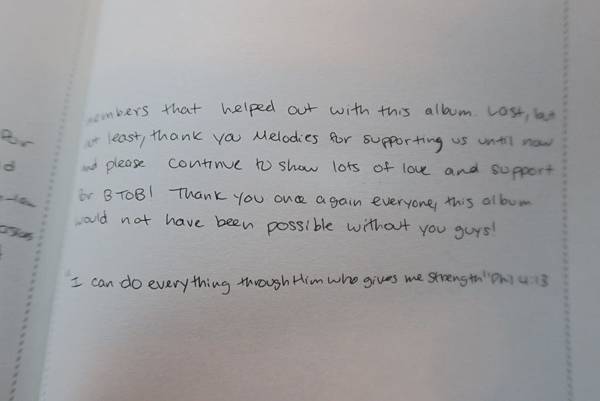 members that helped out with this album. Last, but
not least, thank you Melodies for supporting us until now
and please continue to show lots of love and support
for BTOB! Thank you once again everyone, this album
would not have been possible without you guys!
"I can do everything through Him who gives me strength" Phil 4:13
for